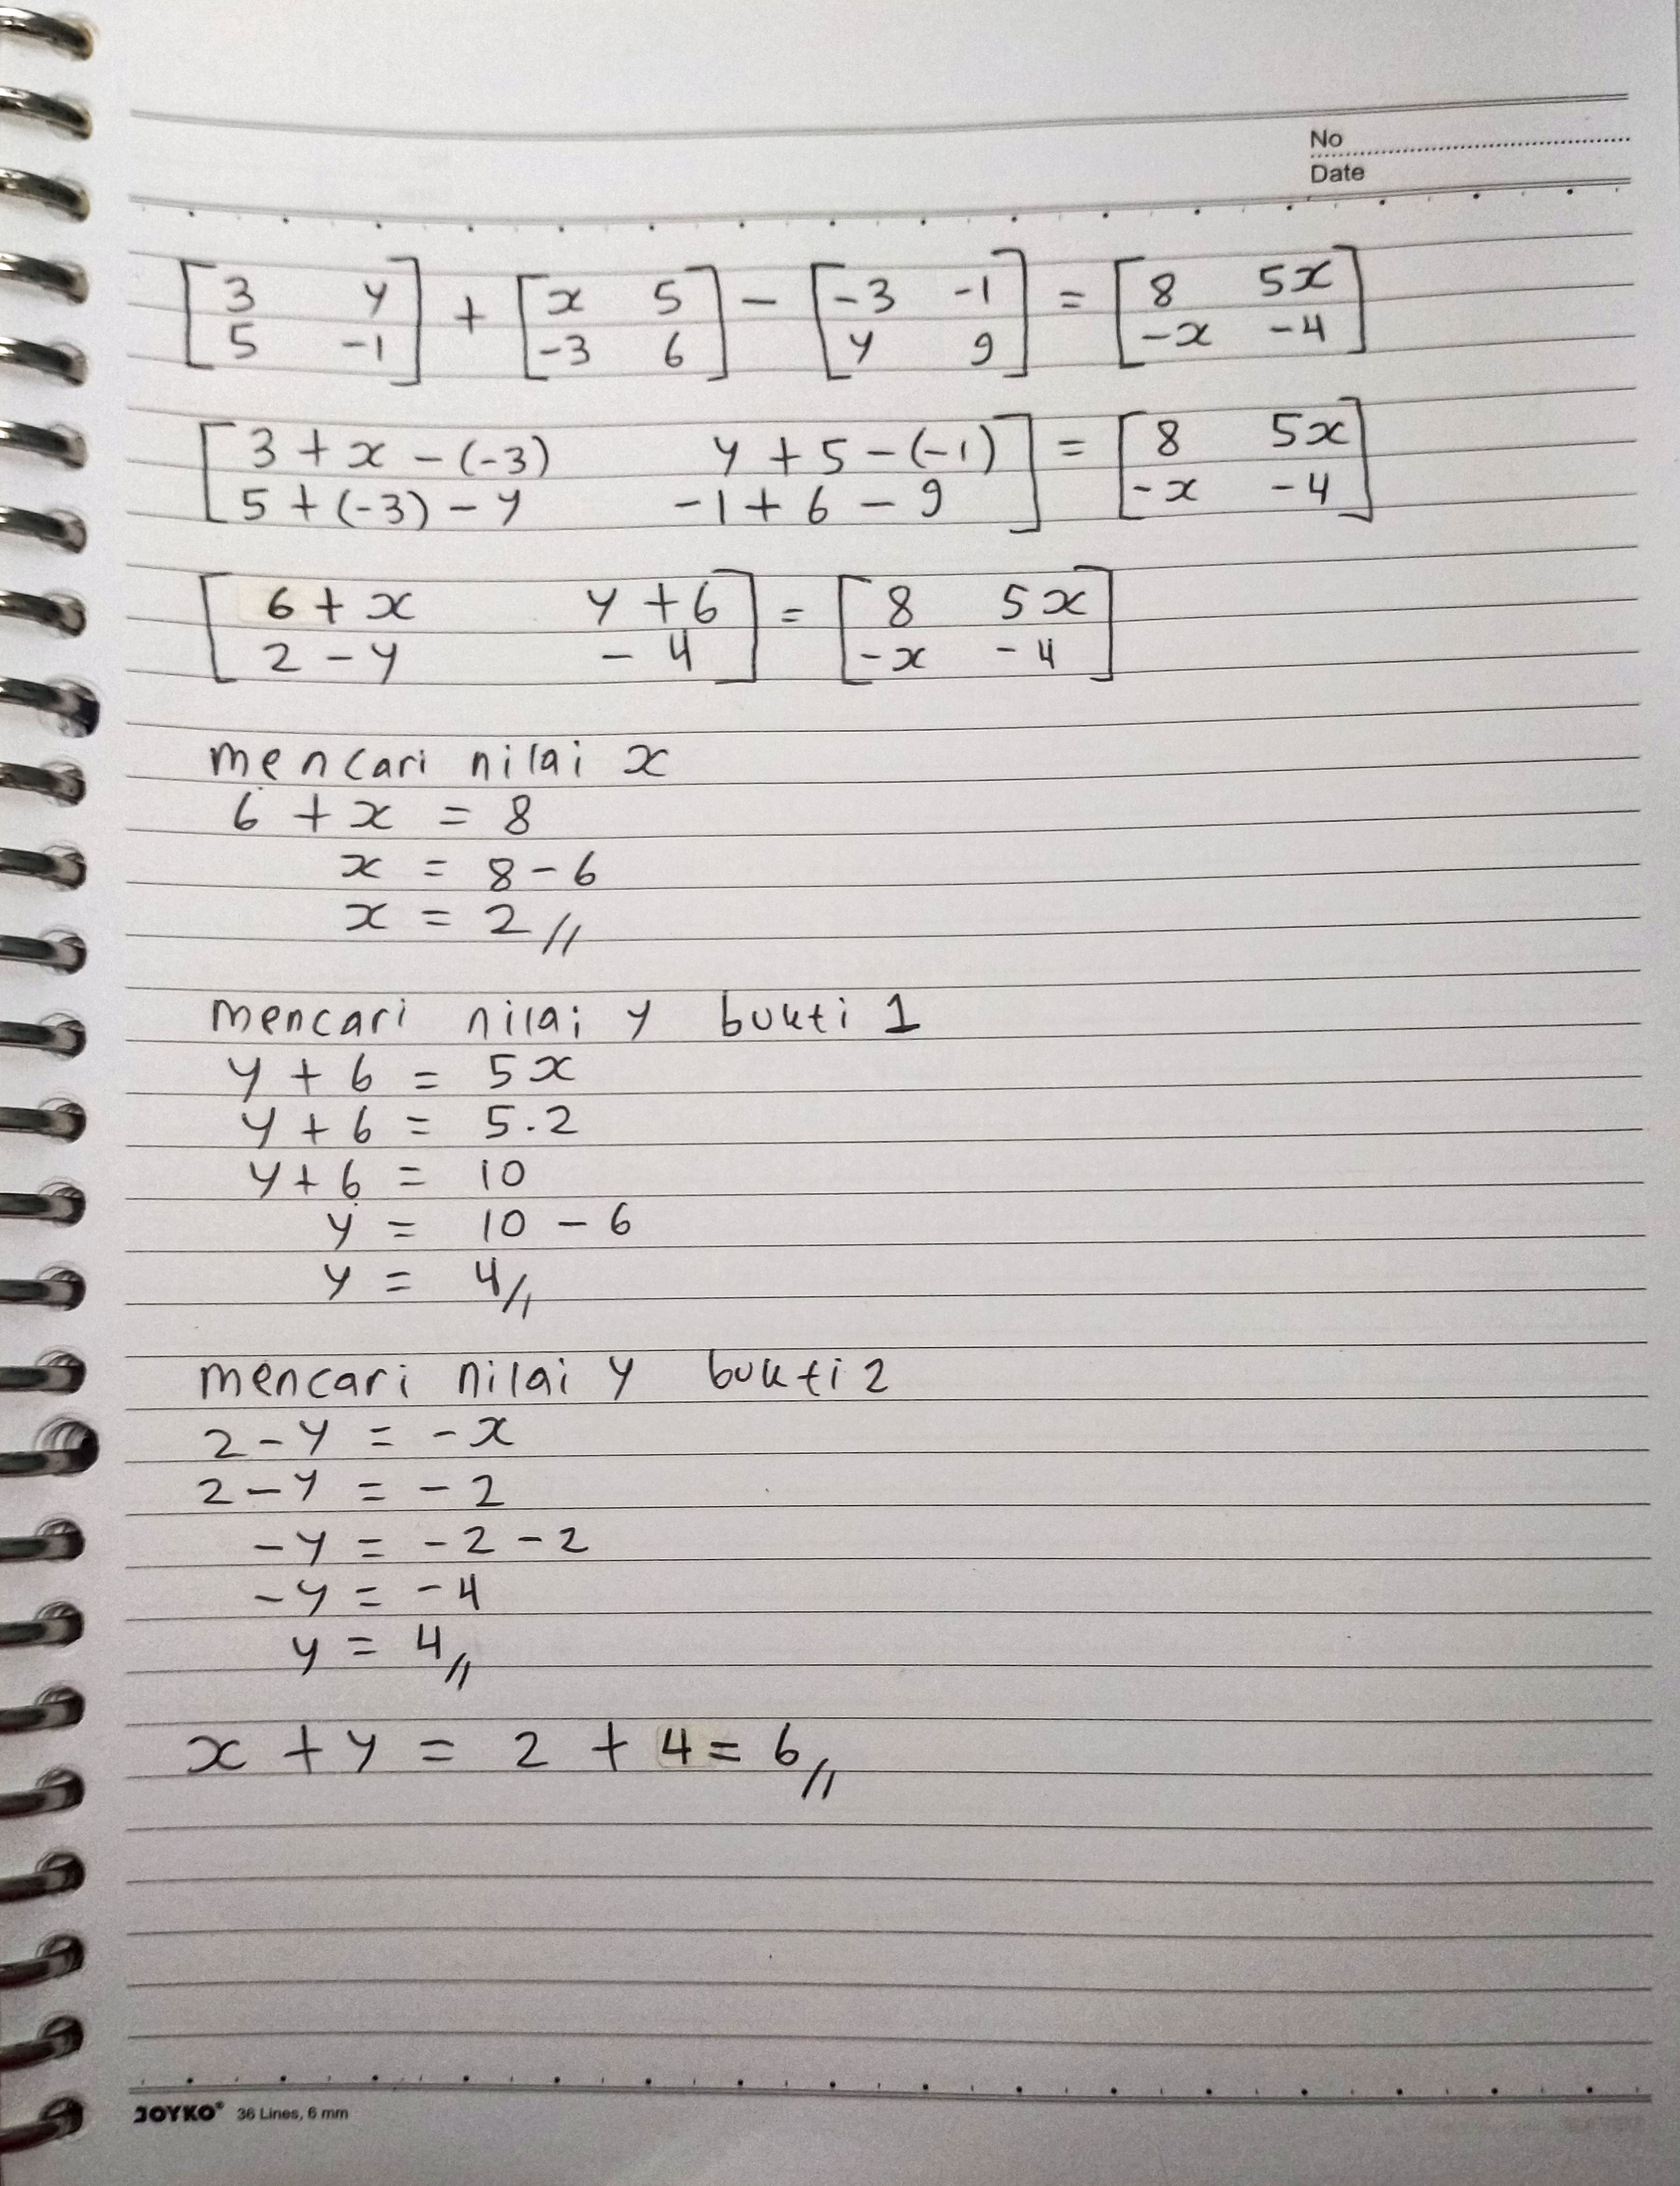 No
Date
[3 y] + [x 5] - [-3 -1] = [8 5x]
[5 -1] [-3 6] [y 9] [-x -4]
[3 + x - (-3) y + 5 - (-1)] = [8 5x]
[5 + (-3) - y -1 + 6 - 9] [-x -4]
[6 + x y + 6] = [8 5x]
[2 - y - 4] [-x -4]
mencari nilai x
6 + x = 8
x = 8 - 6
x = 2 //
mencari nilai y bukti 1
y + 6 = 5x
y + 6 = 5.2
y + 6 = 10
y = 10 - 6
y = 4 //
mencari nilai y bukti 2
2 - y = -x
2 - y = -2
-y = -2 - 2
-y = -4
y = 4 //
x + y = 2 + 4 = 6 //
JOYKO® 36 Lines, 6 mm